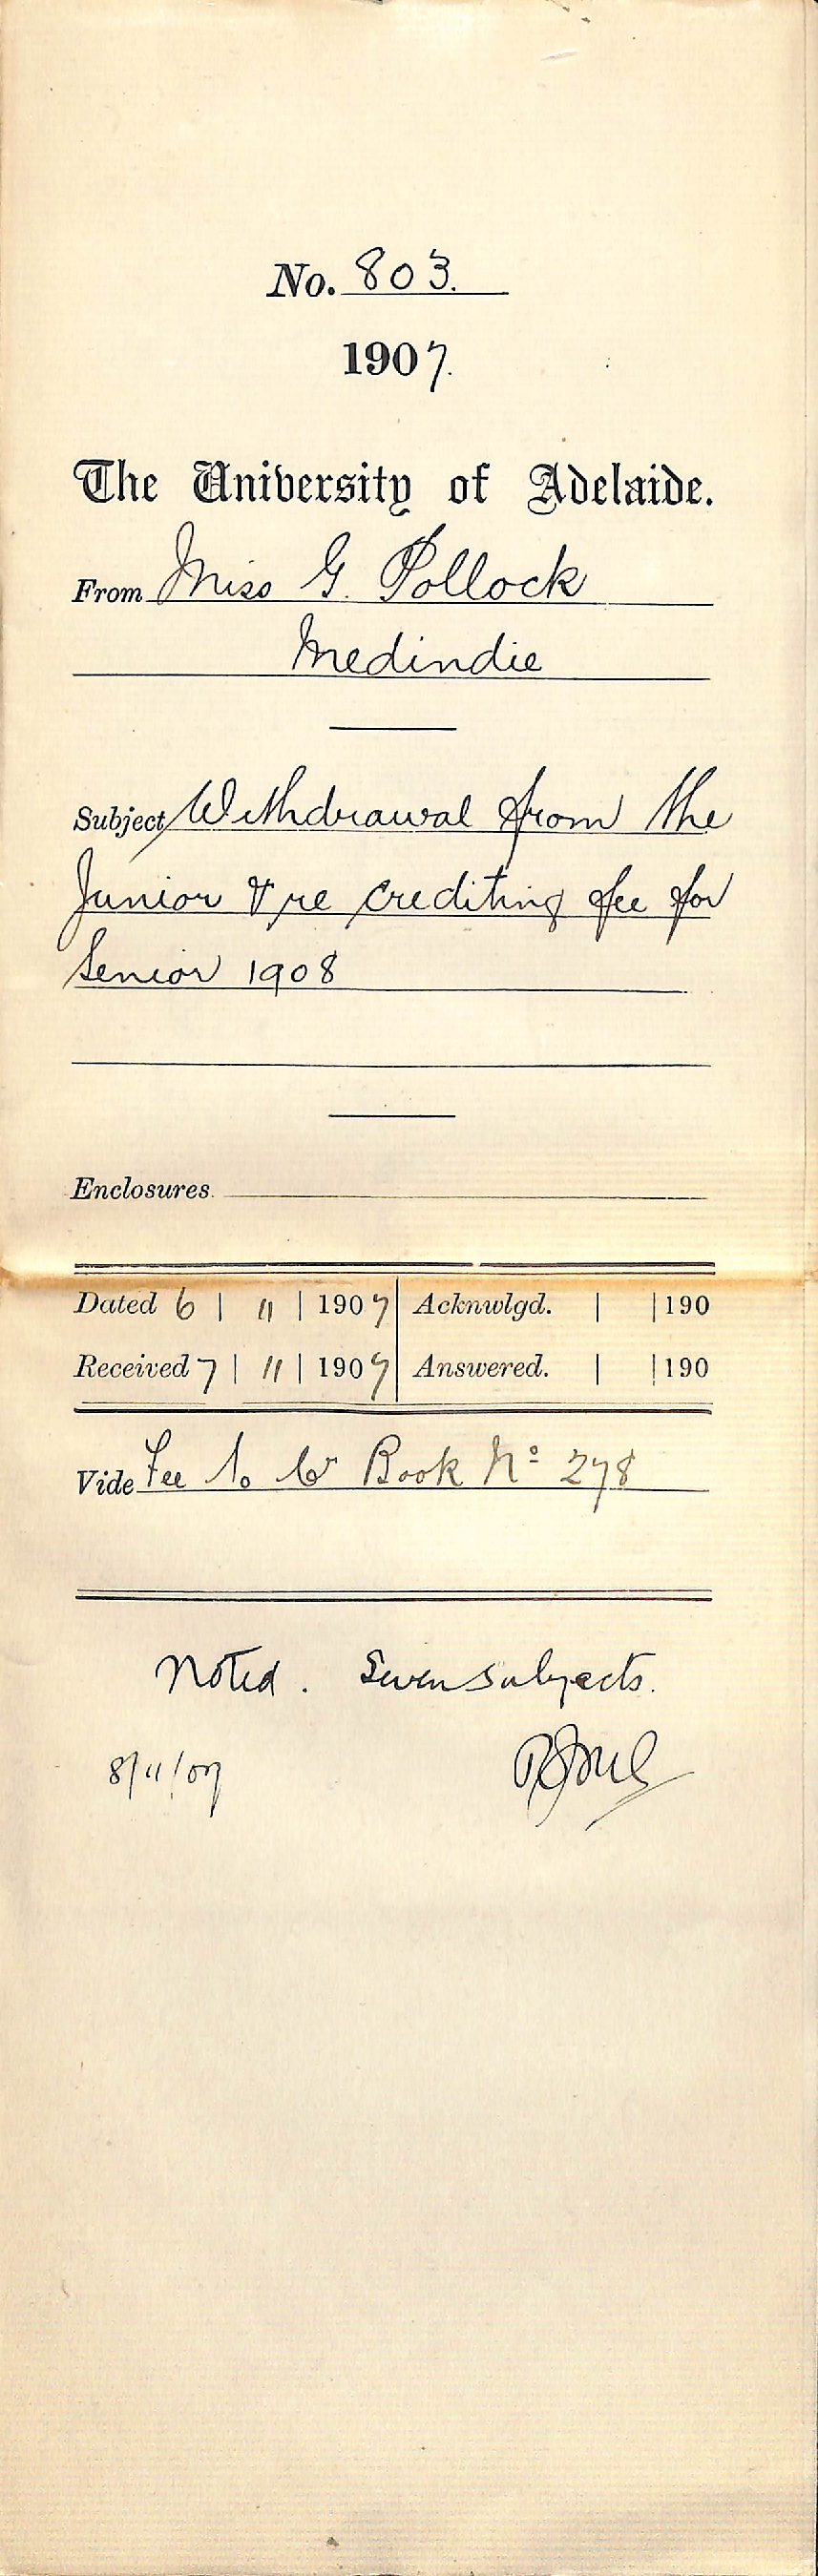 No. 803.
1907.
The University of Adelaide.
From Miss G. Pollock
Medindie
Subject Withdrawal from the
Junior & re crediting fee for
Senior 1908
Enclosures
Dated 6 | 11 | 1907 Acknwlgd. | | 190
Received 7 | 11 | 1907 Answered. | | 190
Vide Fee to Cr Book No 278
Noted. Seven subjects.
8/11/07